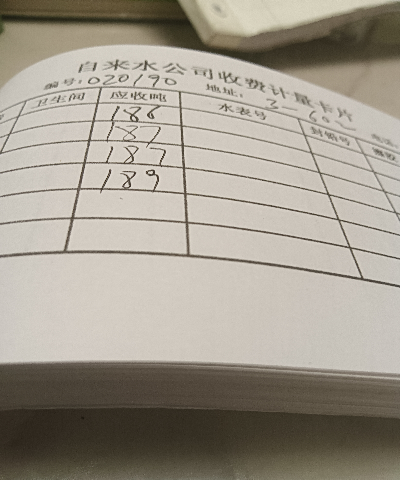 自来水公司收费计量卡片
编号:020190 地址: 3-602
卫生间 应收吨 水表号 封铅号
186
187
187
189